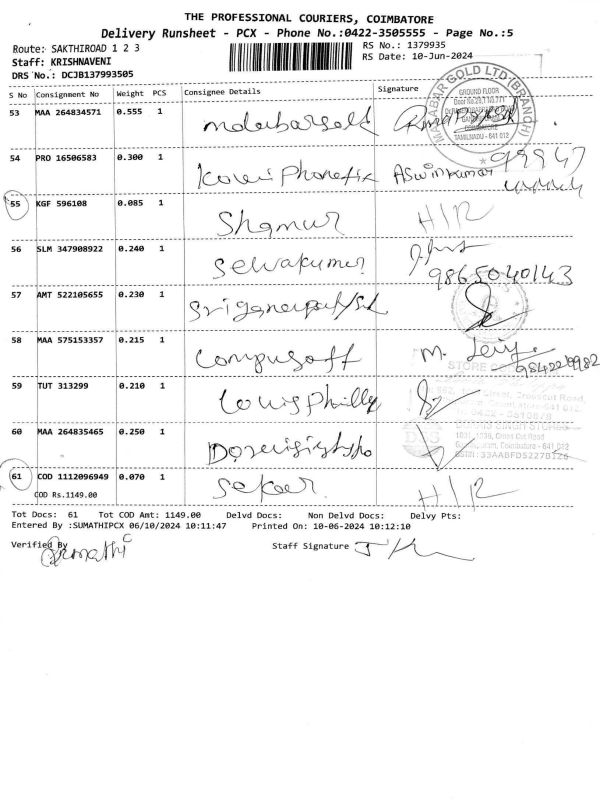 THE PROFESSIONAL COURIERS, COIMBATORE
Delivery Runsheet - PCX - Phone No.:0422-3505555 - Page No.:5
Route: SAKTHIROAD 1 2 3
RS No.: 1379935
Staff: KRISHNAVENI
RS Date: 10-Jun-2024
DRS No.: DCJB137993505
S No Consignment No Weight PCS Consignee Details Signature
MALABAR GOLD LTD (BRANCH)
GROUND FLOOR
COIMBATORE
TAMILNADU - 641 012
53 MAA 264834571 0.555 1 malabargold
54 PRO 16506583 0.300 1 Aswinkumar 99947
44444
55 KGF 596108 0.085 1 Shamur H/R
56 SLM 347908922 0.240 1 Selvakumar
9865040143
57 AMT 522105655 0.230 1
58 MAA 575153357 0.215 1 Compusoft M.
59 TUT 313299 0.210 1 Louisphilly
60 MAA 264835465 0.250 1
1031, 1035, Cross Cut Road
Coimbatore - 641 012
GSTIN : 33AABFD5227B1Z6
61 COD 1112096949 0.070 1 Sekar H/R
COD Rs.1149.00
Tot Docs: 61 Tot COD Amt: 1149.00 Delvd Docs: Non Delvd Docs: Delvy Pts:
Entered By :SUMATHIPCX 06/10/2024 10:11:47 Printed On: 10-06-2024 10:12:10
Verified By Sumathi C Staff Signature